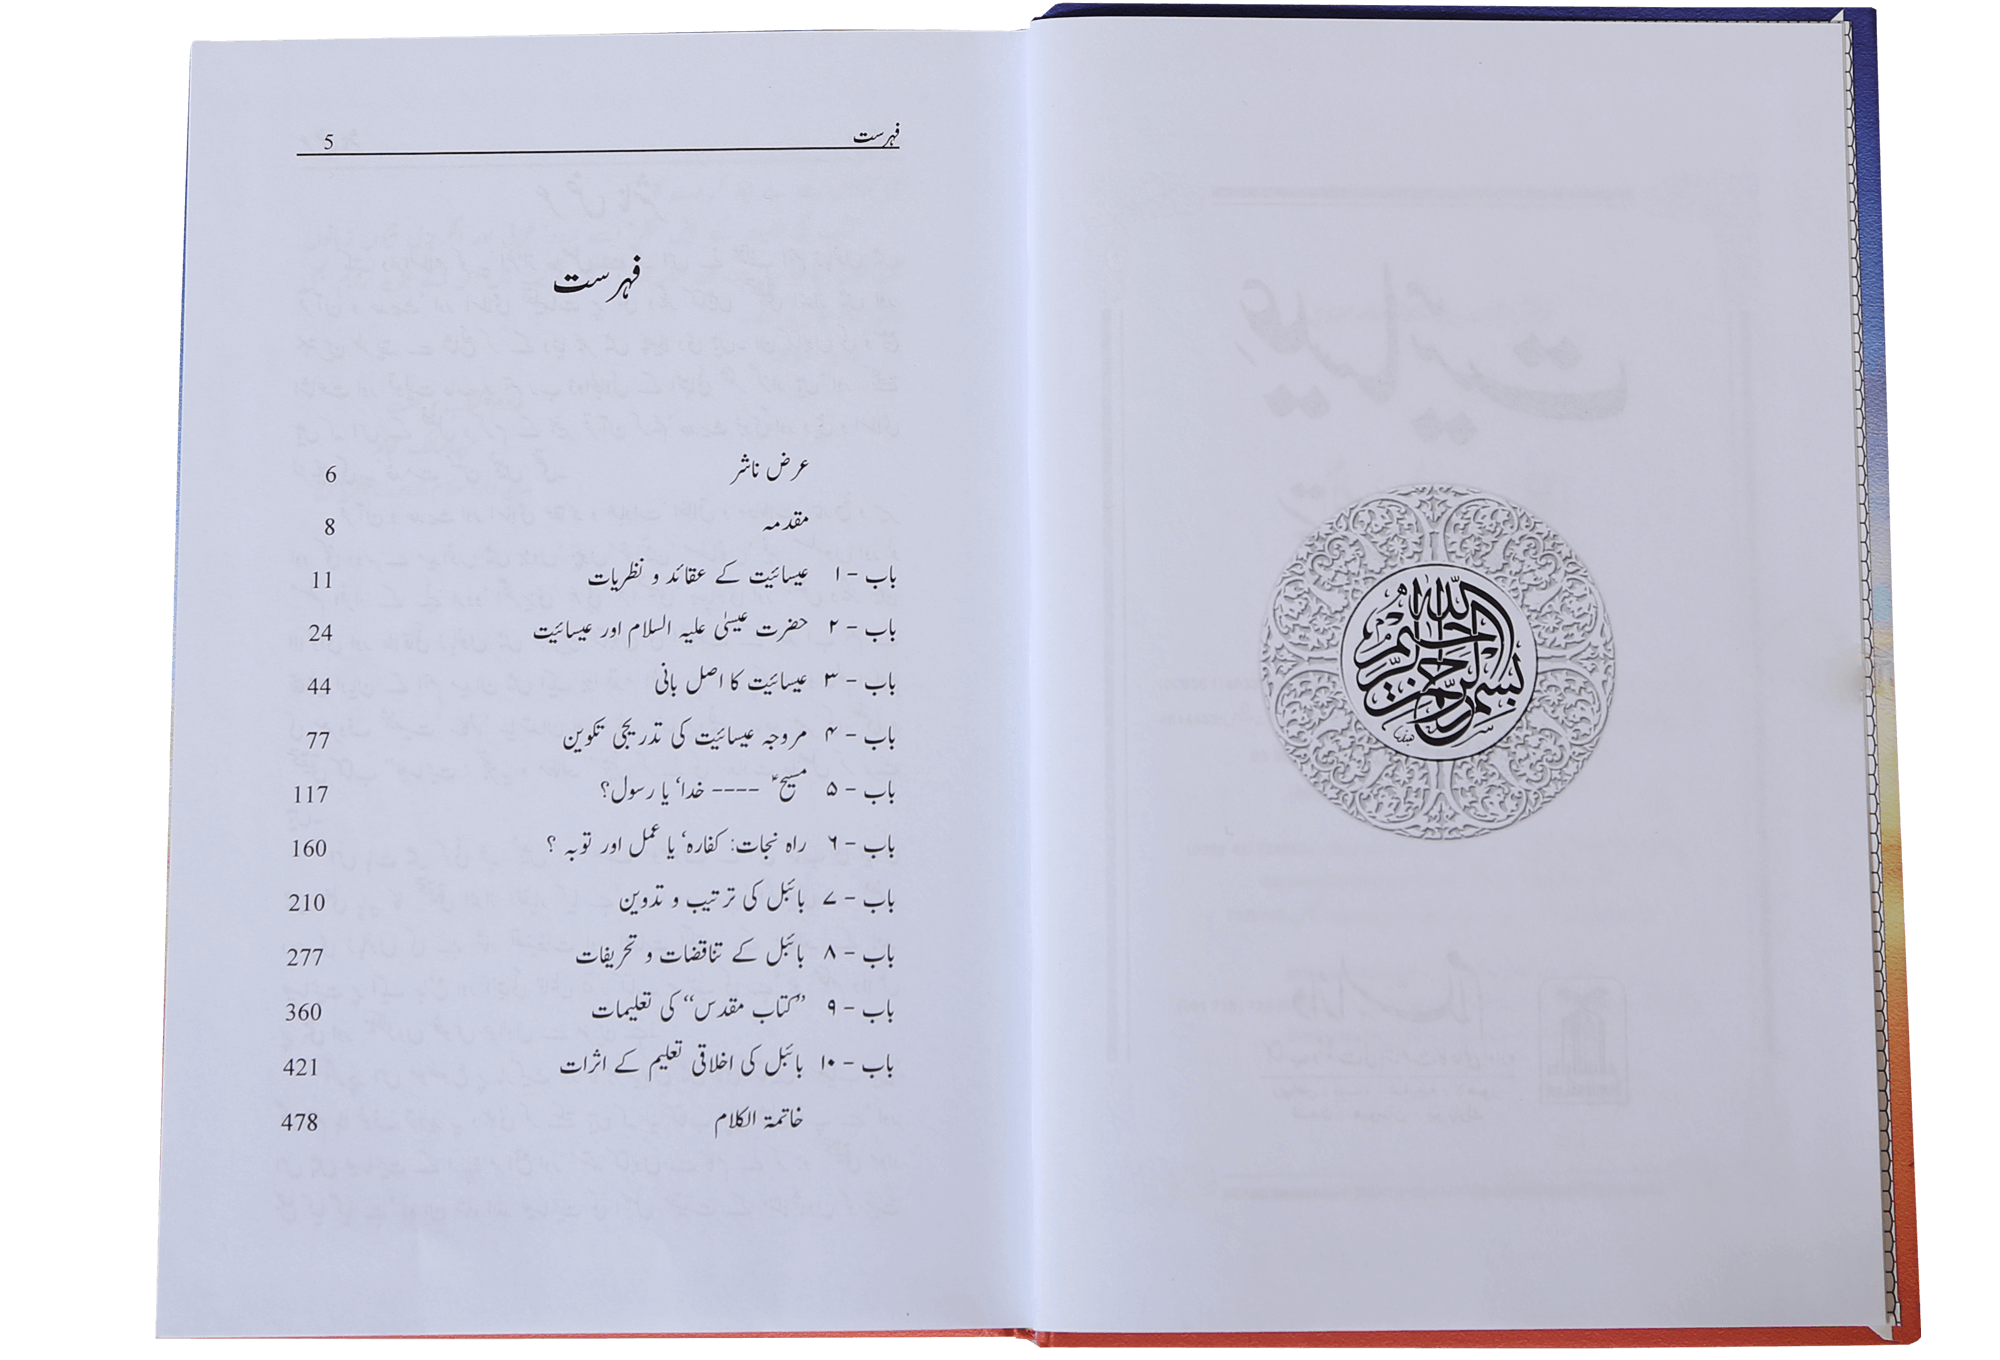 بسم الله الرحمن الرحيم
فہرست 5
فہرست
عرض ناشر 6
مقدمہ 8
باب - ۱ عیسائیت کے عقائد و نظریات 11
باب - ۲ حضرت عیسیٰ علیہ السلام اور عیسائیت 24
باب - ۳ عیسائیت کا اصل بانی 44
باب - ۴ مروجہ عیسائیت کی تدریجی تکوین 77
باب - ۵ مسیحؑ ---- خدا‘ یا رسول؟ 117
باب - ۶ راہ نجات: کفارہ‘ یا عمل اور توبہ ؟ 160
باب - ۷ بائبل کی ترتیب و تدوین 210
باب - ۸ بائبل کے تناقضات و تحریفات 277
باب - ۹ ”کتاب مقدس“ کی تعلیمات 360
باب - ۱۰ بائبل کی اخلاقی تعلیم کے اثرات 421
خاتمۃ الکلام 478